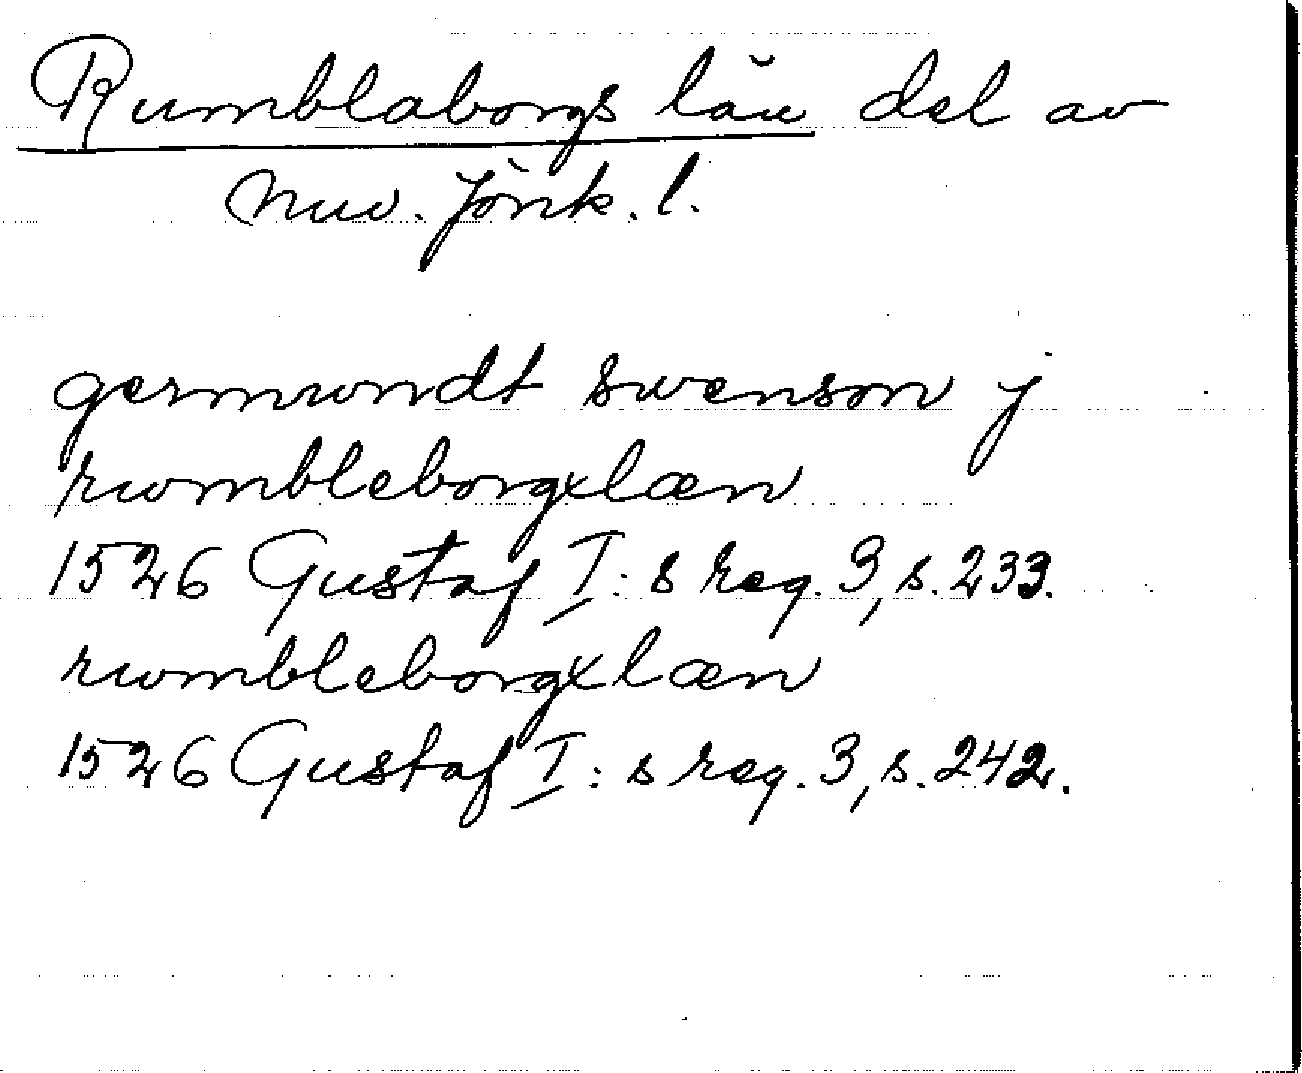 Rumblaborgs län del av
nuv. Jönk. l.
germwndt swenson j
rwmbleborgxlæn
1526 Gustaf I:s reg. 3, s. 233.
rwmbleborgxlæn
1526 Gustaf I:s reg. 3, s. 242.